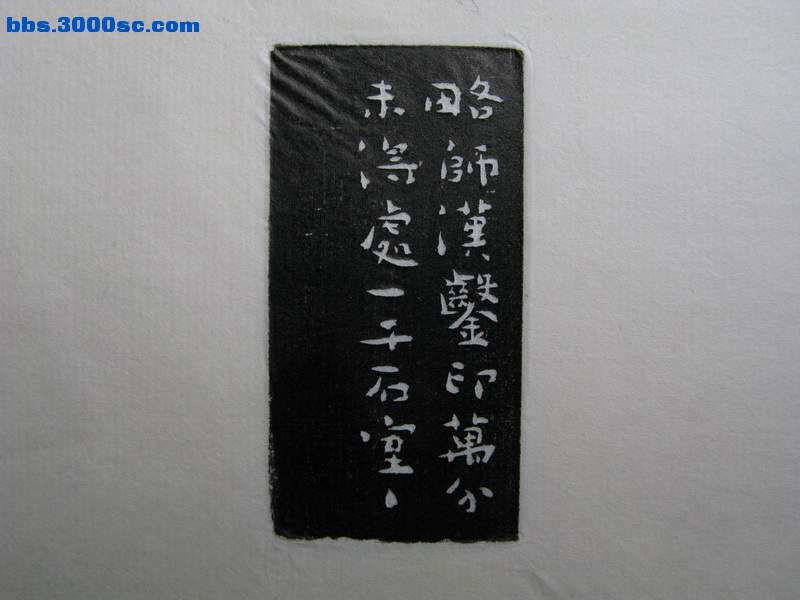 bbs.3000sc.com
略師漢鑿印萬分
未得處一千石室丶